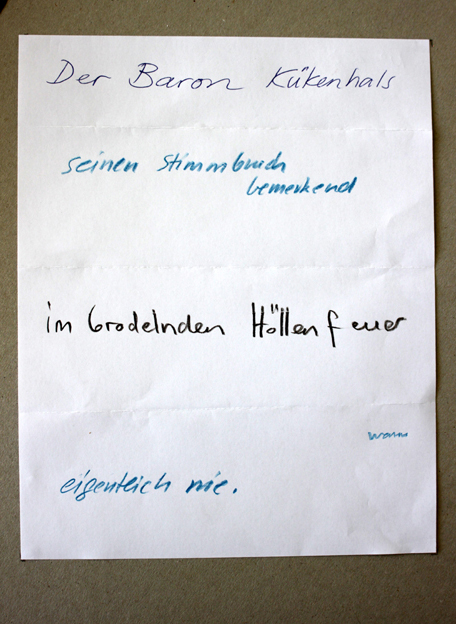 Der Baron Kükenhals
seinen Stimmbruch
bemerkend
im brodelnden Höllenfeuer
wann
eigentlich nie.